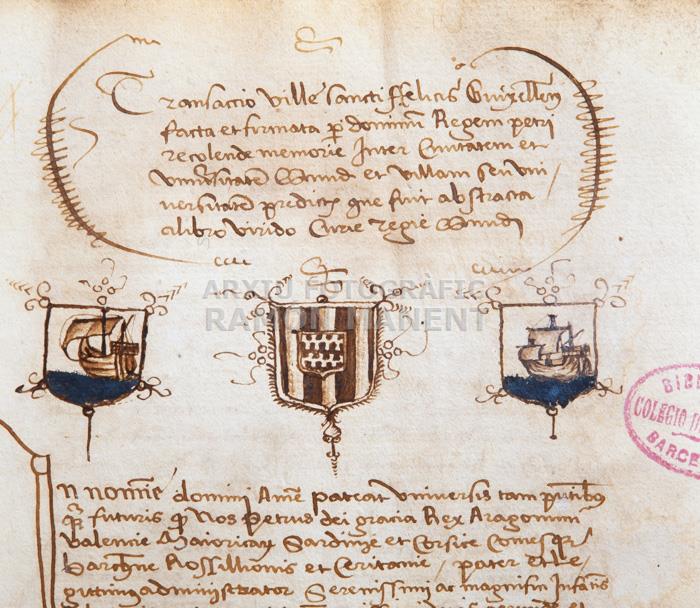 Transactio Ville sancti ffelicis Guixellen
facta et firmata per dominum Regem petri
recolende memorie Inter Civitatem et
universitatem Gerund et villam seu uni
versitatem predictam que fuit abstracta
a libro viridi Curie regie Gerund
ARXIU FOTOGRÀFIC
RAMON MANENT
BIBL
COLEGIO
BARCE
In nomine domini Amen pateat universis tam presentibus
quam futuris quod Nos Petrus dei gracia Rex Aragonum
Valencie Maioricarum Sardinie et Corsice Comesque
barchinone Rossillionis et Ceritanie pater et le
gittimus administrator Serenissimi ac magnifici Infantis